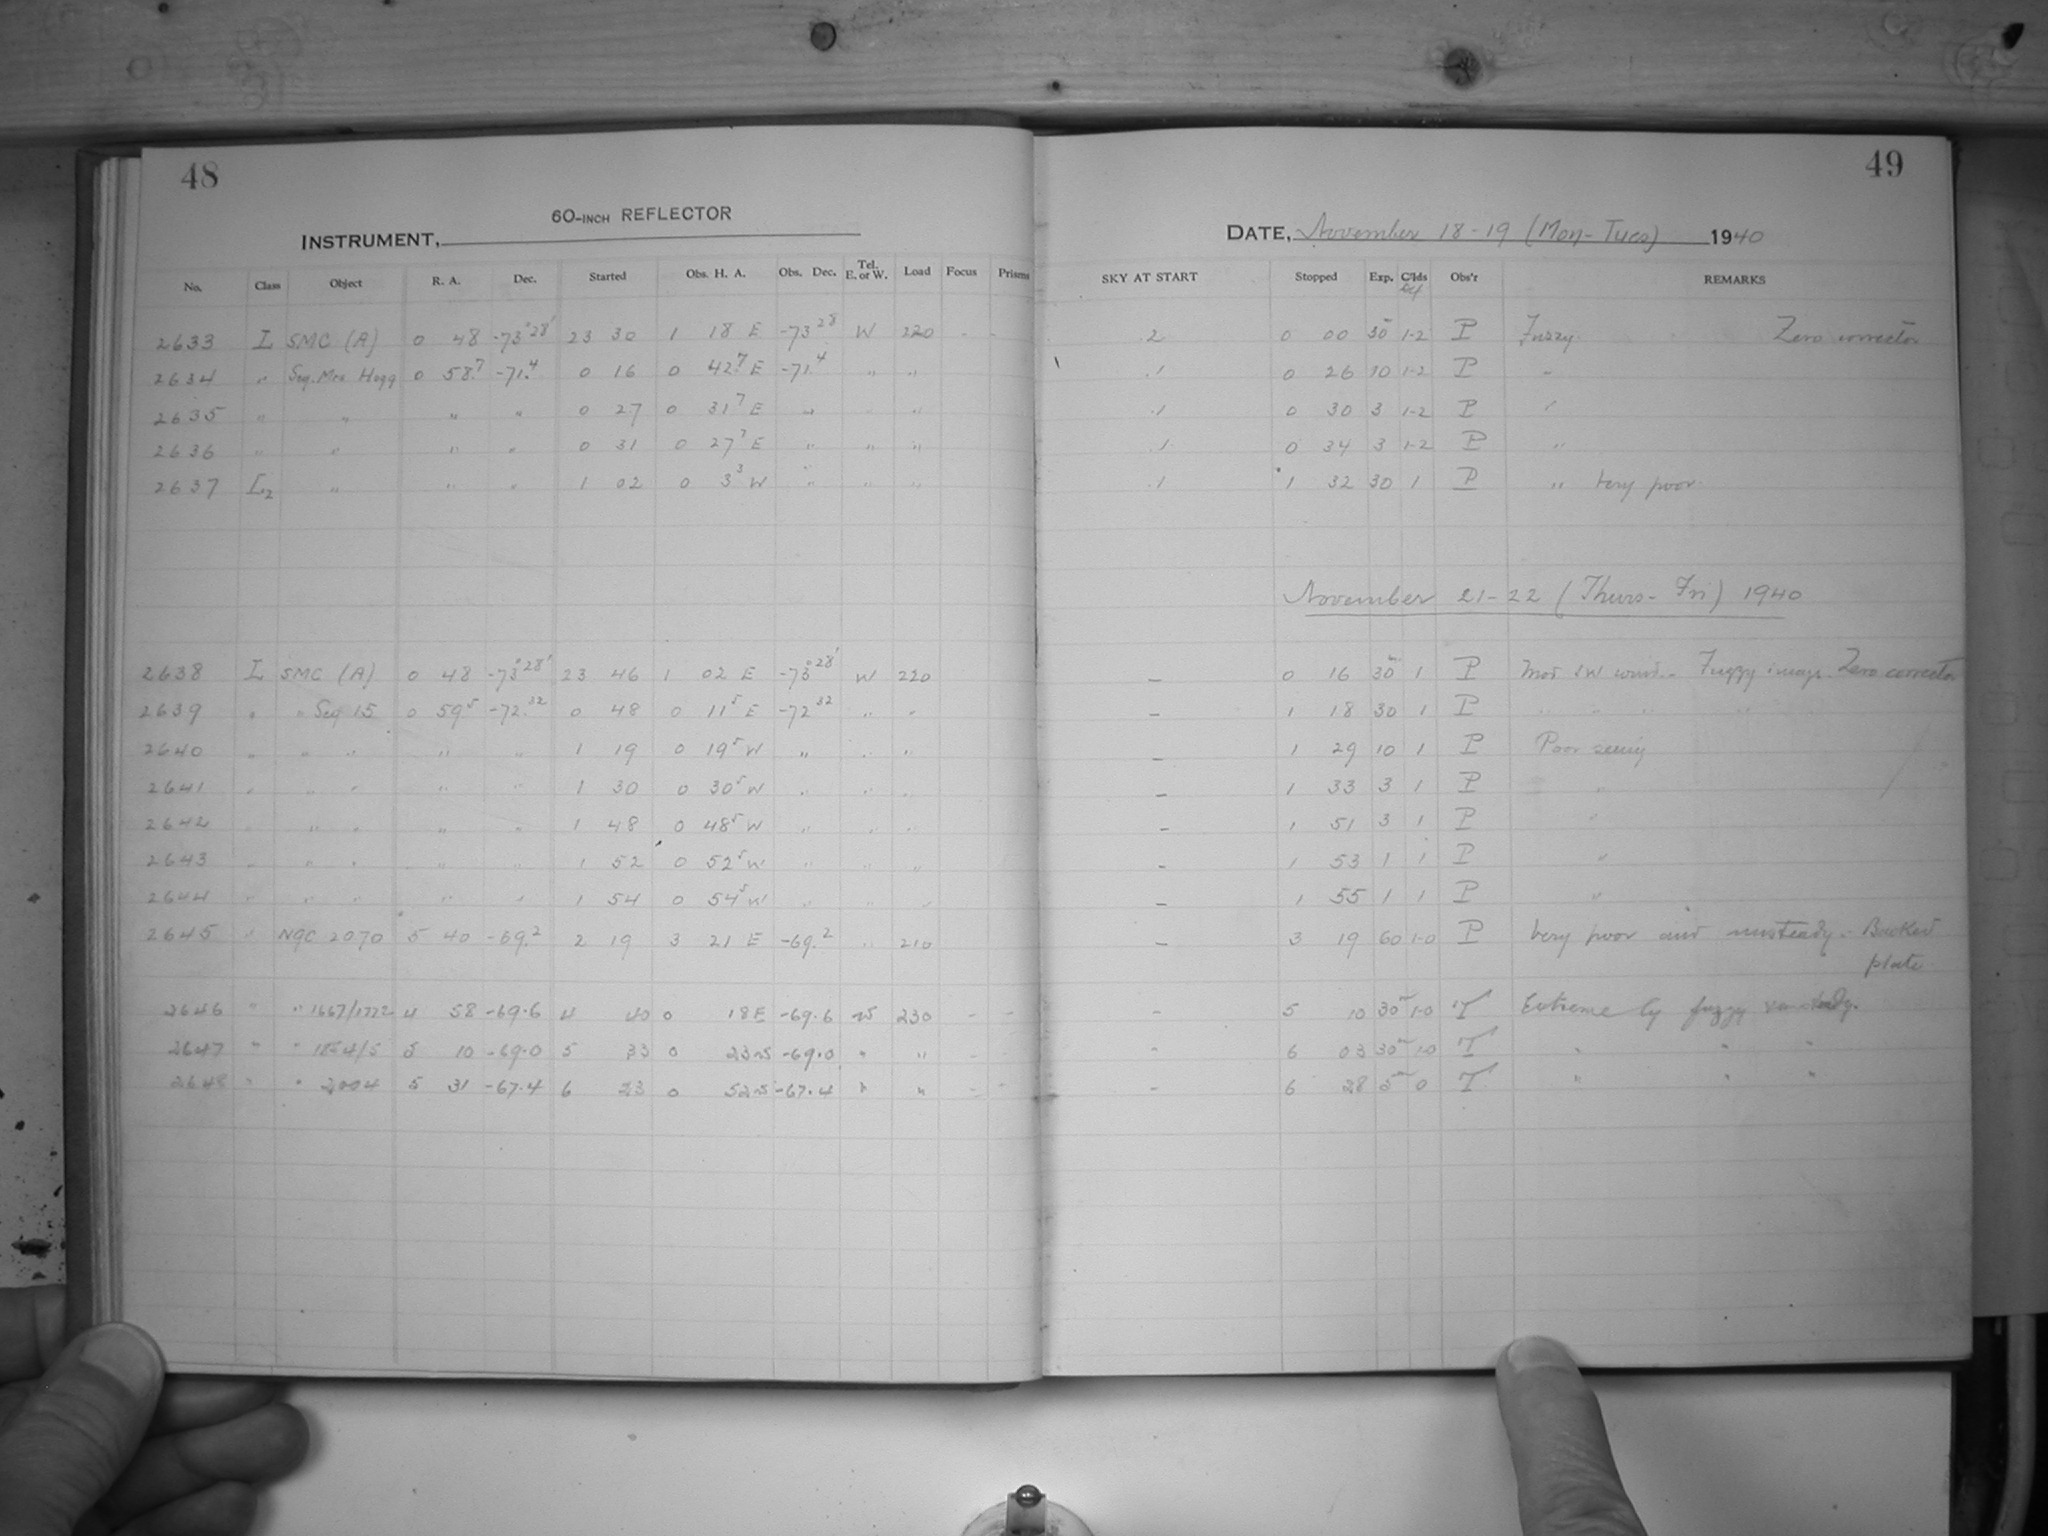 48
49
60-INCH REFLECTOR
INSTRUMENT,
DATE, November 18-19 (Mon-Tues) 1940
No. Class Object R. A. Dec. Started Obs. H. A. Obs. Dec. Tel. E. or W. Load Focus Prisms SKY AT START Stopped Exp. C'lds Obs'r REMARKS
2633 I SMC (A) 0 48 -73°28' 23 30 1 18 E -73 28 W 220 - - .2 0 00 30 1-2 P Fuzzy. Zero corrector
2634 " Seq. Mrs Hogg 0 58.7 -71.4 0 16 0 42.7 E -71.4 " " .1 0 26 10 1-2 P "
2635 " " " " 0 27 0 31 7 E " " .1 0 30 3 1-2 P "
2636 " " " " 0 31 0 27 7 E " " " .1 0 34 3 1-2 P "
2637 I2 " " " 1 02 0 3 3 W " " " .1 1 32 30 1 P " Very poor.
November 21-22 (Thurs-Fri) 1940
2638 I SMC (A) 0 48 -73°28' 23 46 1 02 E -73°28' W 220 - 0 16 30 1 P Mod SW wind - Fuzzy image. Zero corrector
2639 " " Seq 15 0 59 5 -72.32 0 48 0 11 5 E -72 32 " " - 1 18 30 1 P " " " "
2640 " " " " " 1 19 0 19 5 W " " " - 1 29 10 1 P Poor seeing
2641 " " " " " 1 30 0 30 5 W " " " - 1 33 3 1 P "
2642 " " " " " 1 48 0 48 5 W " " " - 1 51 3 1 P "
2643 " " " " " 1 52 0 52 5 W " " " - 1 53 1 1 P "
2644 " " " " " 1 54 0 54 5 W " " " - 1 55 1 1 P "
2645 " NGC 2070 5 40 -69.2 2 19 3 21 E -69.2 " 210 - 3 19 60 1-0 P Very poor and unsteady - Backed
plate
2646 " " 1667/1722 4 58 -69.6 4 40 0 18 E -69.6 W 230 - - - 5 10 30m 1-0 T Extremely fuzzy unsteady.
2647 " " 1854/5 5 10 -69.0 5 33 0 23 W -69.0 " " - - - 6 03 30m 1-0 T " " "
2648 " " 2004 5 31 -67.4 6 23 0 52 W -67.4 " " - - - 6 28 5m 0 T " " "